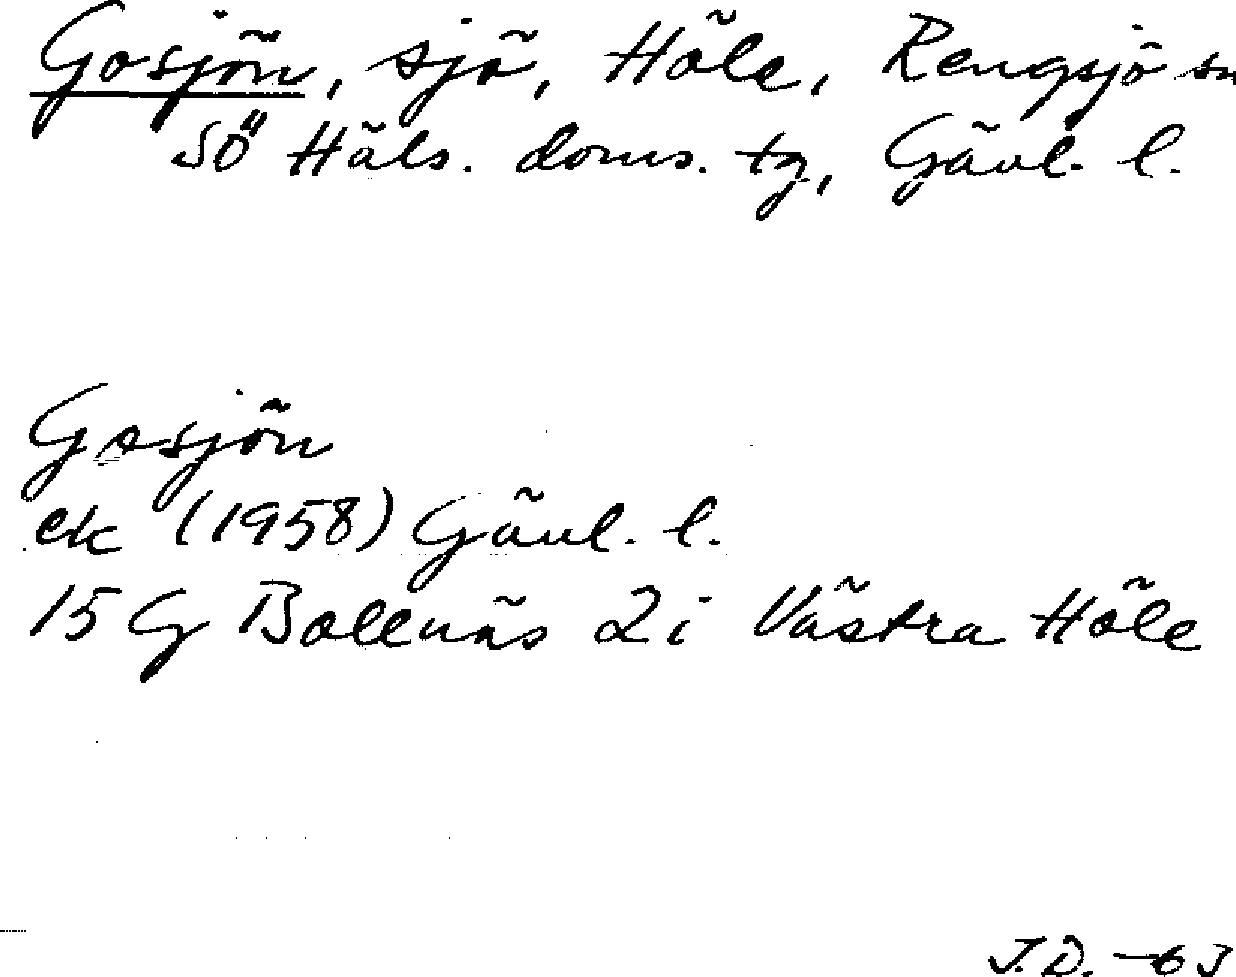 Gosjön, sjö, Höle, Rengsjö sn
SÖ Häls. doms. tg, Gävl. l.
Gosjön
ek (1958) Gävl. l.
15 G Bollnäs 2 i Västra Höle
J.D. -63